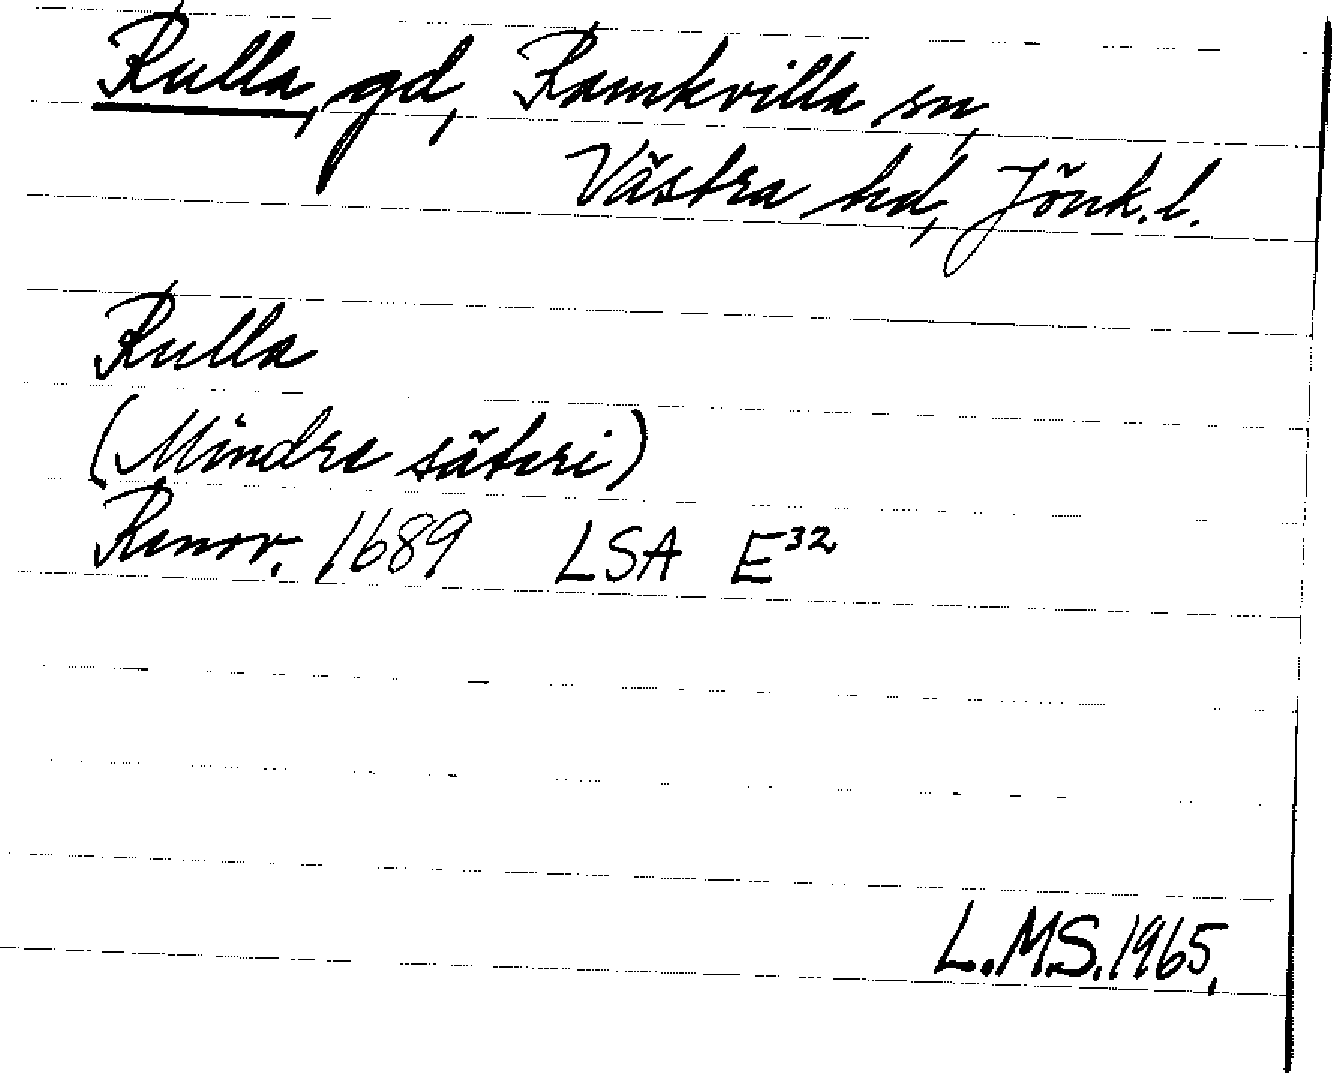 Rulla, gd, Ramkvilla sn,
Västra hd, Jönk. l.
Rulla
(Mindre säteri)
Renov. 1689 LSA E³²
L.M.S. 1965.